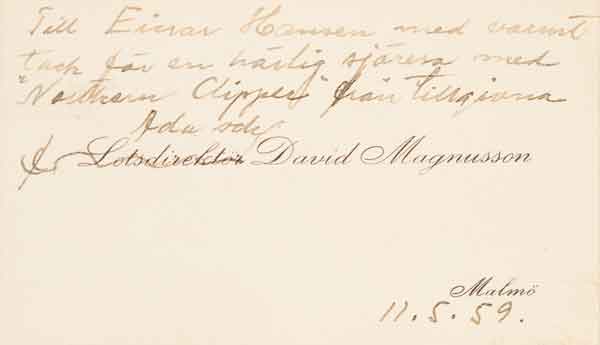 Till Einar Hansen med varmt
tack för en härlig sjöresa med
"Northern Clipper" från tillgivna
Ada och
Lotsdirektör David Magnusson
Malmö
11.5.59.